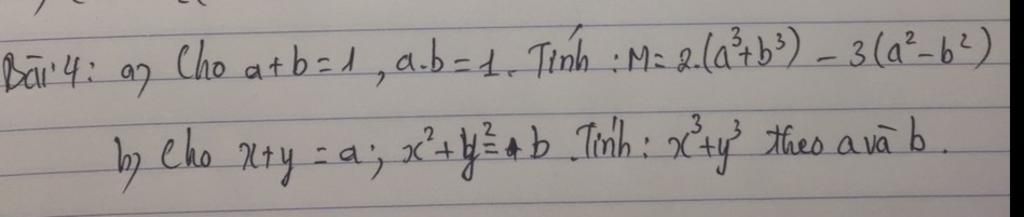 Bài 4: a) Cho a+b=1, a.b=1. Tính: M=2.(a³+b³) - 3(a²-b²)
b) Cho x+y=a; x²+y²=b. Tính: x³+y³ theo a và b.